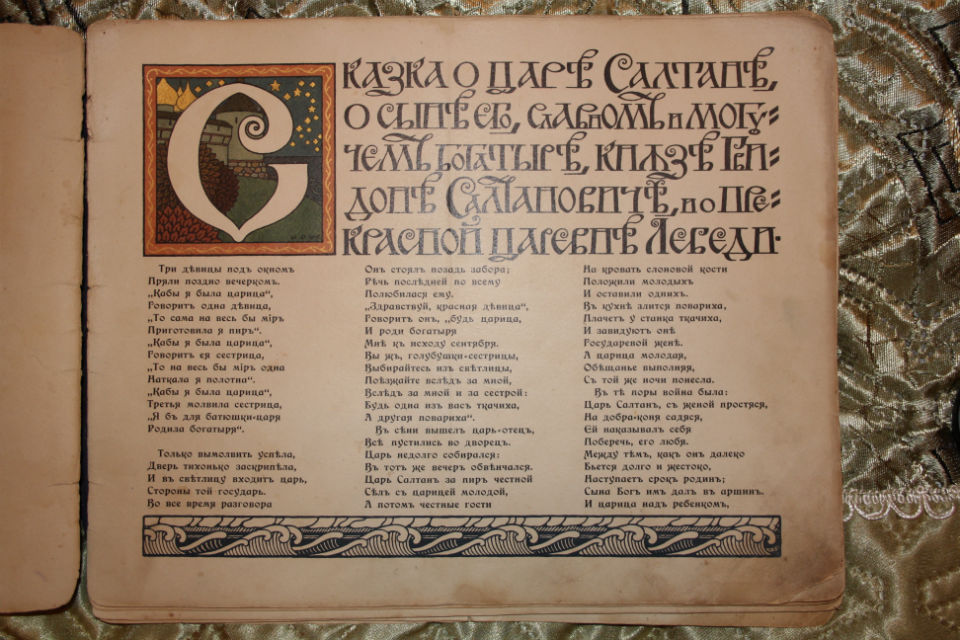 СКАЗКА О ЦАРѢ САЛТАНѢ,
О СЫНѢ ЕГО, СЛАВНОМЪ И МОГУ-
ЧЕМЪ БОГАТЫРѢ, КНЯЗѢ ГВИ-
ДОНѢ САЛТАНОВИЧѢ, И О ПРЕ-
КРАСНОЙ ЦАРЕВНѢ ЛЕБЕДИ.
Три дѣвицы подъ окномъ
Пряли поздно вечеркомъ.
„Кабы я была царица“,
Говоритъ одна дѣвица,
„То сама на весь бы міръ
Приготовила я пиръ“.
„Кабы я была царица“,
Говоритъ ея сестрица,
„То на весь бы міръ одна
Наткала я полотна“.
„Кабы я была царица“,
Третья молвила сестрица,
„Я бъ для батюшки-царя
Родила богатыря“.
Только вымолвить успѣла,
Дверь тихонько заскрипѣла,
И въ свѣтлицу входитъ царь,
Стороны той государь.
Во все время разговора
Онъ стоялъ позадь забора;
Рѣчь послѣдней по всему
Полюбилася ему.
„Здравствуй, красная дѣвица“,
Говоритъ онъ, „будь царица,
И роди богатыря
Мнѣ къ исходу сентября.
Вы жъ, голубушки-сестрицы,
Выбирайтесь изъ свѣтлицы,
Поѣзжайте вслѣдъ за мной,
Вслѣдъ за мной и за сестрой:
Будь одна изъ васъ ткачиха,
А другая повариха“.
Въ сѣни вышелъ царь-отецъ,
Всѣ пустились во дворецъ.
Царь недолго собирался:
Въ тотъ же вечеръ обвѣнчался.
Царь Салтанъ за пиръ честной
Сѣлъ съ царицей молодой,
А потомъ честные гости
На кровать слоновой кости
Положили молодыхъ
И оставили однихъ.
Въ кухнѣ злится повариха,
Плачетъ у станка ткачиха,
И завидуютъ онѣ
Государевой женѣ.
А царица молодая,
Обѣщанье выполняя,
Съ той же ночи понесла.
Въ тѣ поры война была:
Царь Салтанъ, съ женой простяся,
На добра-коня садяся,
Ей наказывалъ себя
Поберечь, его любя.
Между тѣмъ, какъ онъ далеко
Бьется долго и жестоко,
Наступаетъ срокъ родинъ;
Сына Богъ имъ далъ въ аршинъ.
И царица надъ ребенкомъ,